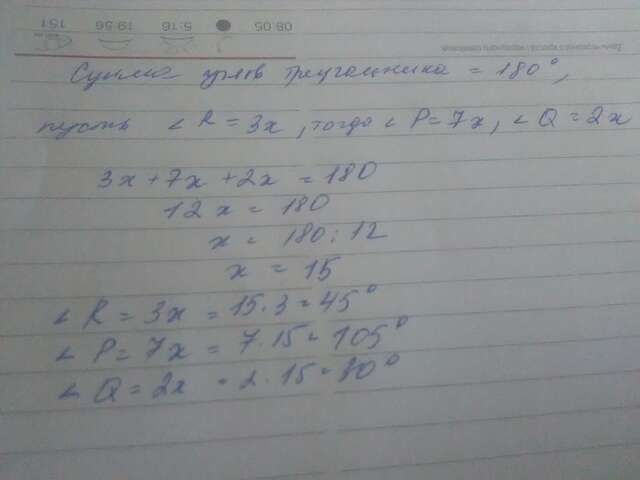 151 19.56 5.16 09.05
Сумма углов треугольника = 180°,
пусть < R = 3x, тогда < P = 7x, < Q = 2x
3x + 7x + 2x = 180
12x = 180
x = 180 : 12
x = 15
< R = 3x = 15 . 3 = 45°
< P = 7x = 7 . 15 = 105°
< Q = 2x = 2 . 15 = 30°